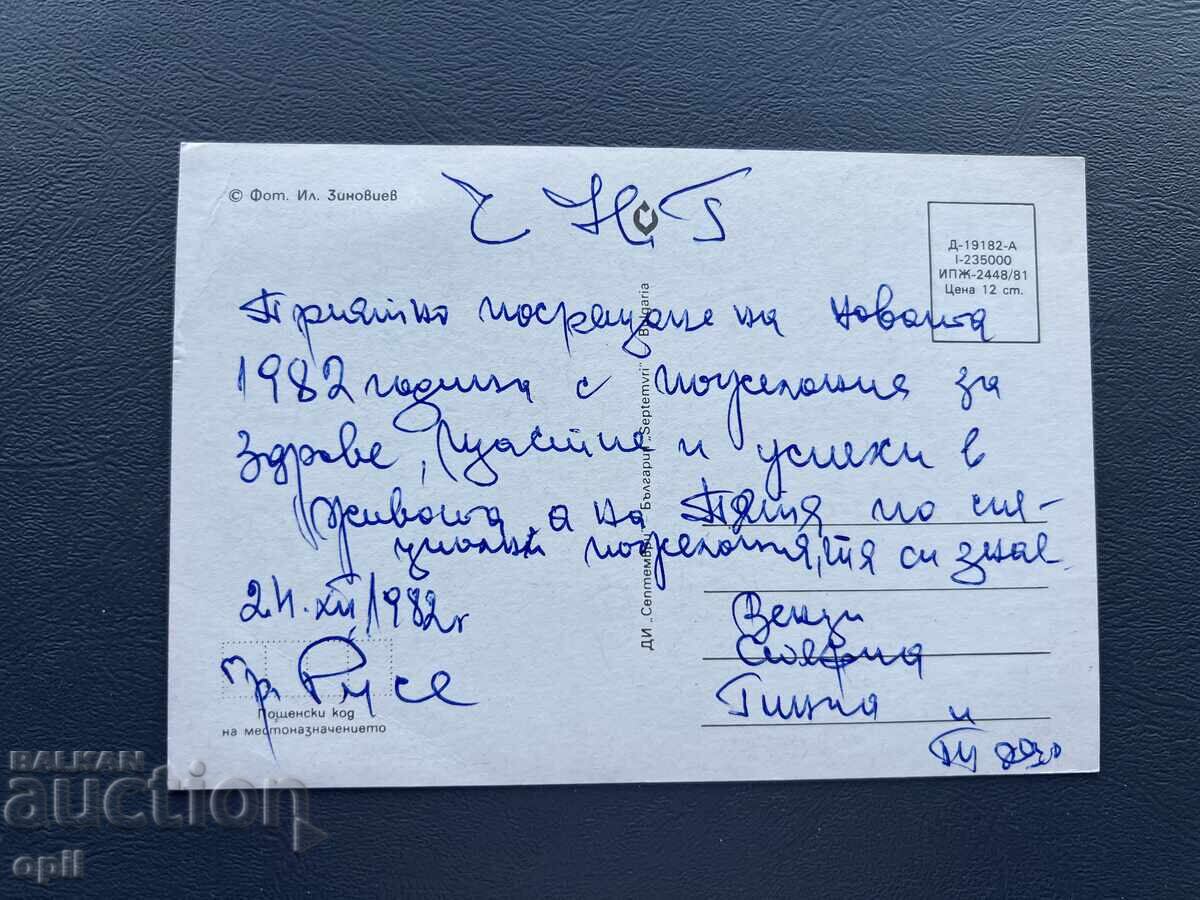 © Фот. Ил. Зиновиев
Ч Н Г
Д-19182-А
I-235000
ИПЖ-2448/81
Цена 12 ст.
Приятно посрещане на новата
1982 година с пожелания за
здраве, щастие и успехи в
живота, а на Петя по спе-
циални пожелания, тя си знае
24. XII 1982 г
гр. Русе
Пощенски код
на местоназначението
ДИ „Септември" България „Septemvri" Bulgaria
Венци
Гинка и
BALKAN
auction
opil